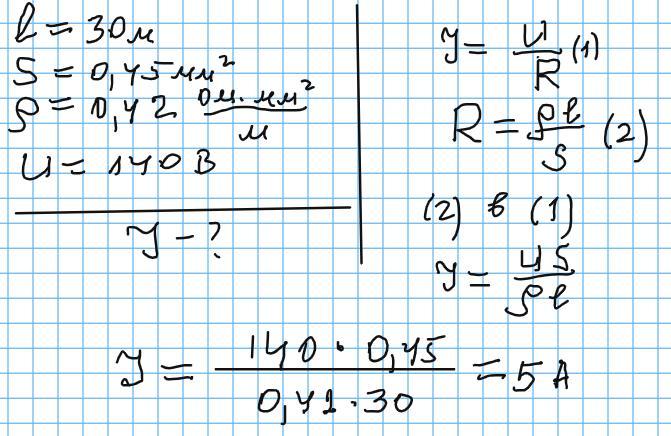 l = 30 м
S = 0,45 мм²
ρ = 0,42 Ом · мм² / м
U = 140 В
J - ?
J = U / R (1)
R = ρl / S (2)
(2) в (1)
J = US / ρl
J = 140 · 0,45 / 0,42 · 30 = 5 А